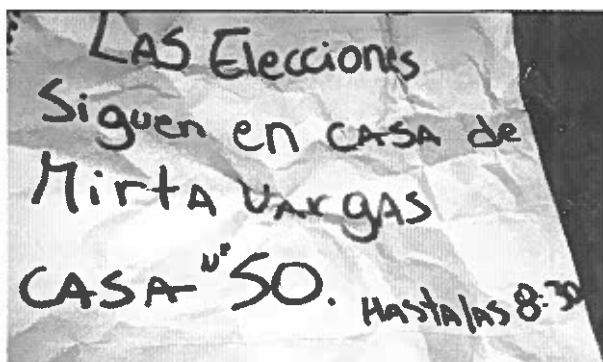 LAS Elecciones
Siguen en CASA de
MirtA VArgAS
CASA Nº 50. HastA lAS 8:30